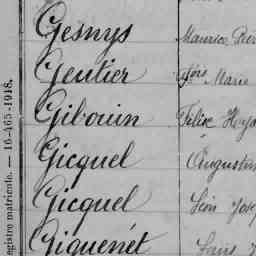 Gesnys Maurice
Gentier Marie
Gibouin Félix
Gicquel Augustin
Gicquel Léon
Giquenét Louis
egistre matricule. — 16-465 -1918.